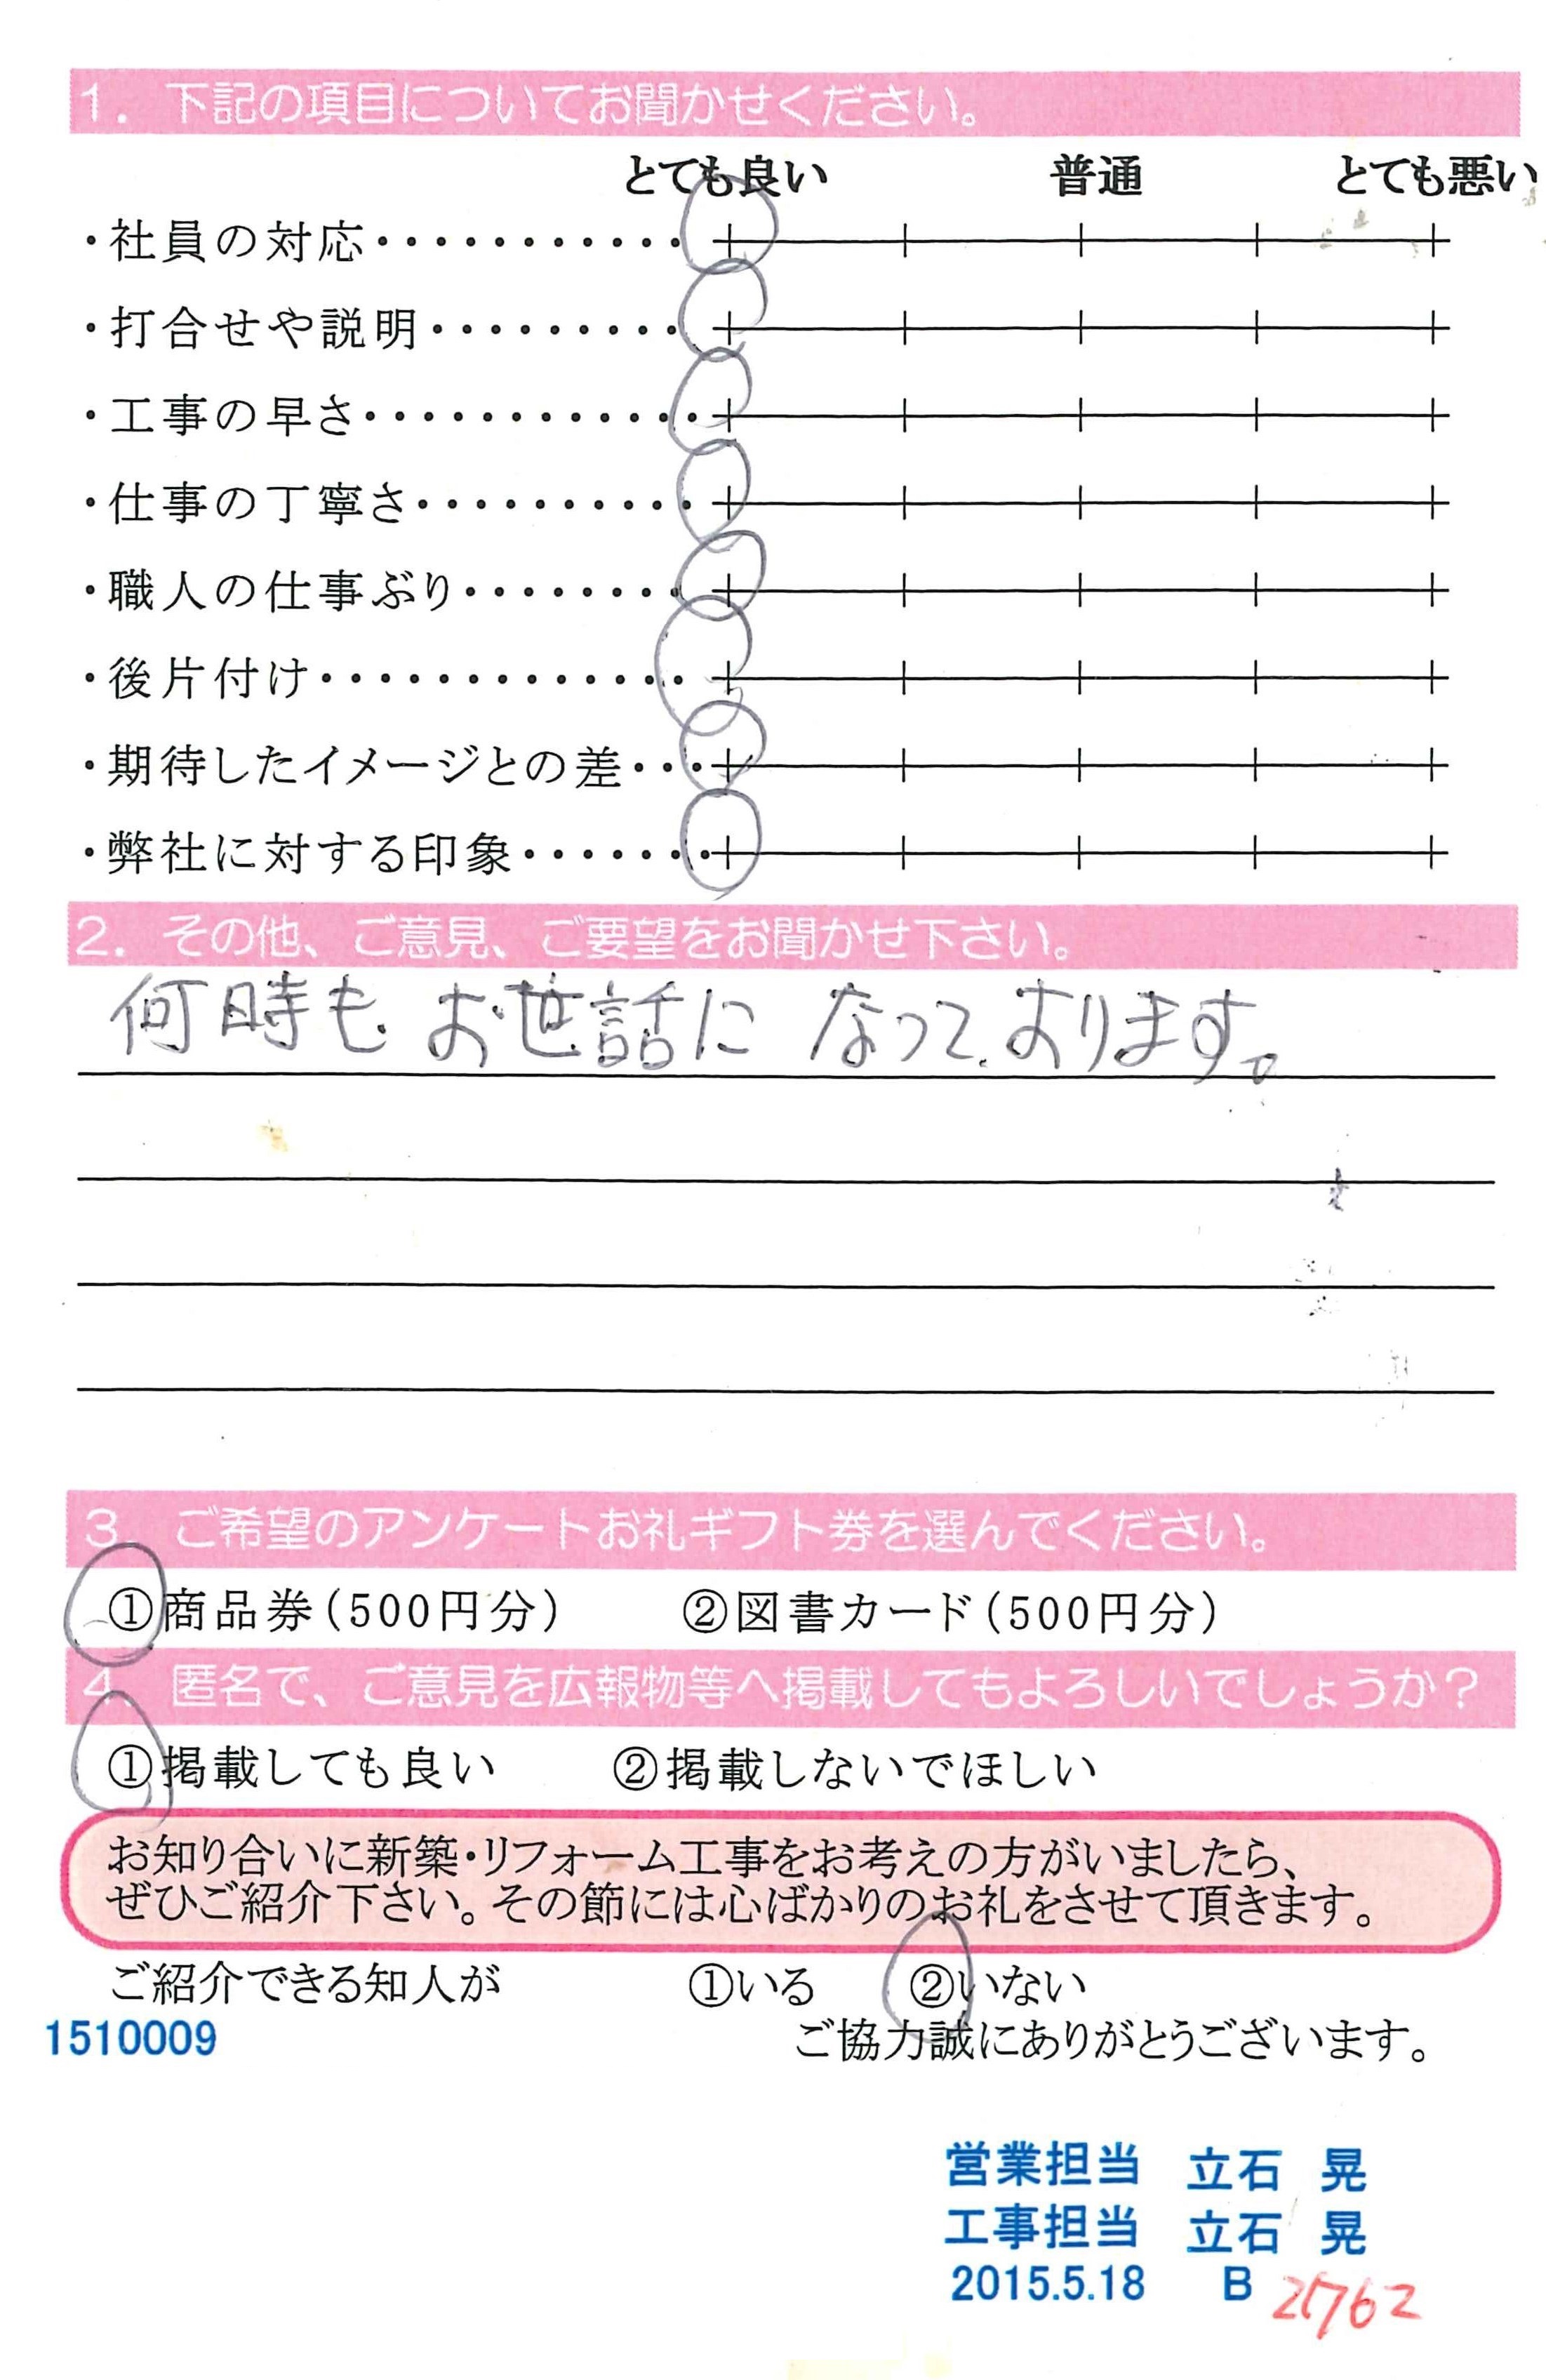 1. 下記の項目についてお聞かせください。
とても良い 普通 とても悪い
・社員の対応・・・・・・・・・・・
・打合せや説明・・・・・・・・・
・工事の早さ・・・・・・・・・・・・
・仕事の丁寧さ・・・・・・・・・・
・職人の仕事ぶり・・・・・・・・
・後片付け・・・・・・・・・・・・・
・期待したイメージとの差・・・
・弊社に対する印象・・・・・・・
2. その他、ご意見、ご要望をお聞かせ下さい。
何時も お世話に なって、おります。
3. ご希望のアンケートお礼ギフト券を選んでください。
①商品券(500円分) ②図書カード(500円分)
4. 匿名で、ご意見を広報物等へ掲載してもよろしいでしょうか?
①掲載しても良い ②掲載しないでほしい
お知り合いに新築・リフォーム工事をお考えの方がいましたら、
ぜひご紹介下さい。その節には心ばかりのお礼をさせて頂きます。
ご紹介できる知人が ①いる ②いない
1510009 ご協力誠にありがとうございます。
営業担当 立石 晃
工事担当 立石 晃
2015.5.18 B